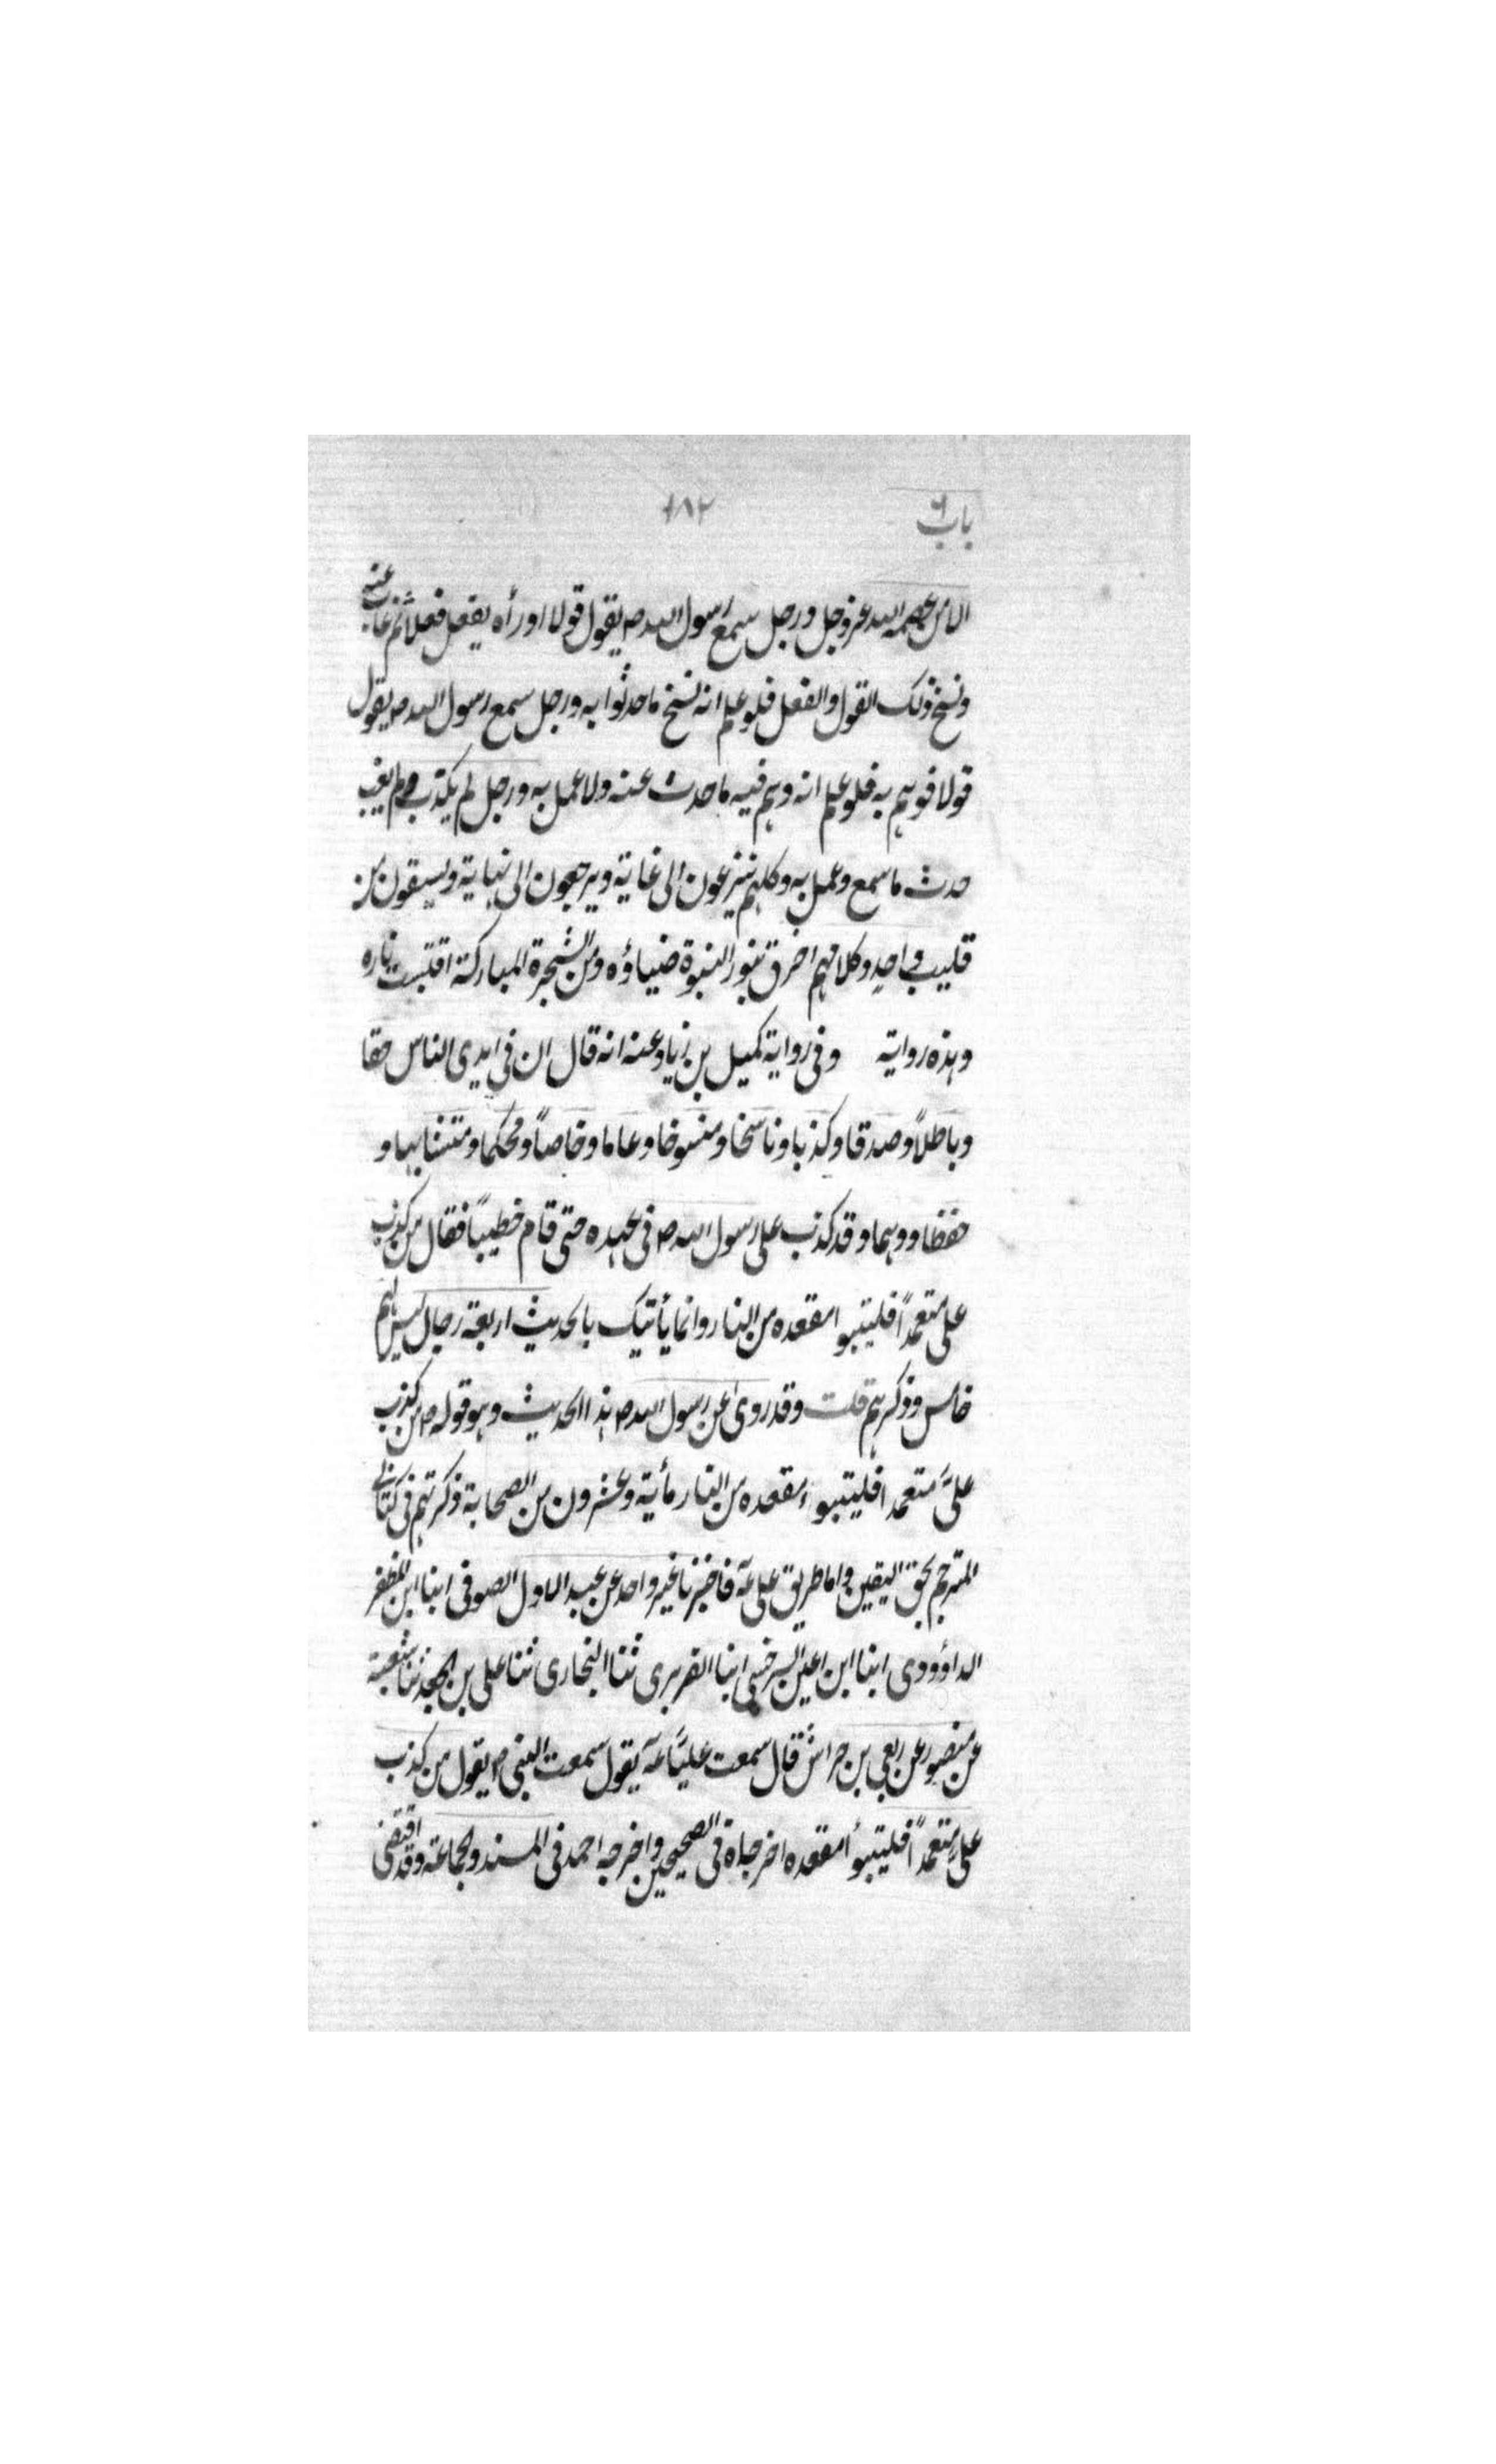 باب ٦ ١٨٢
الا من عصمه الله عزوجل ورجل سمع رسول الله ص يقول قولا اورأه يفعل فعلا ثم غاب عنه
ونسخ ذلك القول والفعل فلو علم انه نسخ ماحدثوا به ورجل سمع رسول الله ص يقول
قولا فوهم به فلو علم انه وهم فيه ماحدث عنه ولا عمل به ورجل لم يكذب ولم يغب
حدث ماسمع وعمل به وكلهم ينزعون الى غاية ويرجعون الى نهاية ويسقون من
قليب واحد وكلامهم اشرق بنور النبوة ضياؤه ومن الشجرة المباركة اقتبست ناره
وهذه رواية وفى رواية كميل بن زياد عنه انه قال ان فى ايدى الناس حقا
وباطلاً وصدقا وكذبا وناسخا ومنسوخا وعاما وخاصاً ومحكما ومتشابها و
حفظا ووهما وقد كذب على رسول الله ص فى عهده حتى قام خطيباً فقال من كذب
على متعمداً فليتبوا مقعده من النار وانما يأتيك بالحديث اربعة رجال ليس لهم
خامس وذكرهم قلت وقد روى عن رسول الله ص هذا الحديث وهو قوله ص من كذب
علىَّ متعمدا فليتبوء مقعده من النار مأية وعشرون من الصحابة ذكرتهم فى كتابى
المترجم بحق اليقين واما طريق على عه فاخبرنا غير واحد عن عبد الاول الصوفى ابنا ابن المظفر
الداؤودى ابنا ابن اعين السرخسى ابنا الفربرى ثنا البخارى ثنا على بن الجعد ثنا شعبة
عن منصور عن ربعى بن حراش قال سمعت عليّا عه يقول سمعت النبى ص يقول من كذب
على متعمداً فليتبوأ مقعده اخرجاه فى الصحيحين واخرجه احمد فى المسند والجماعة وقد اقتضى